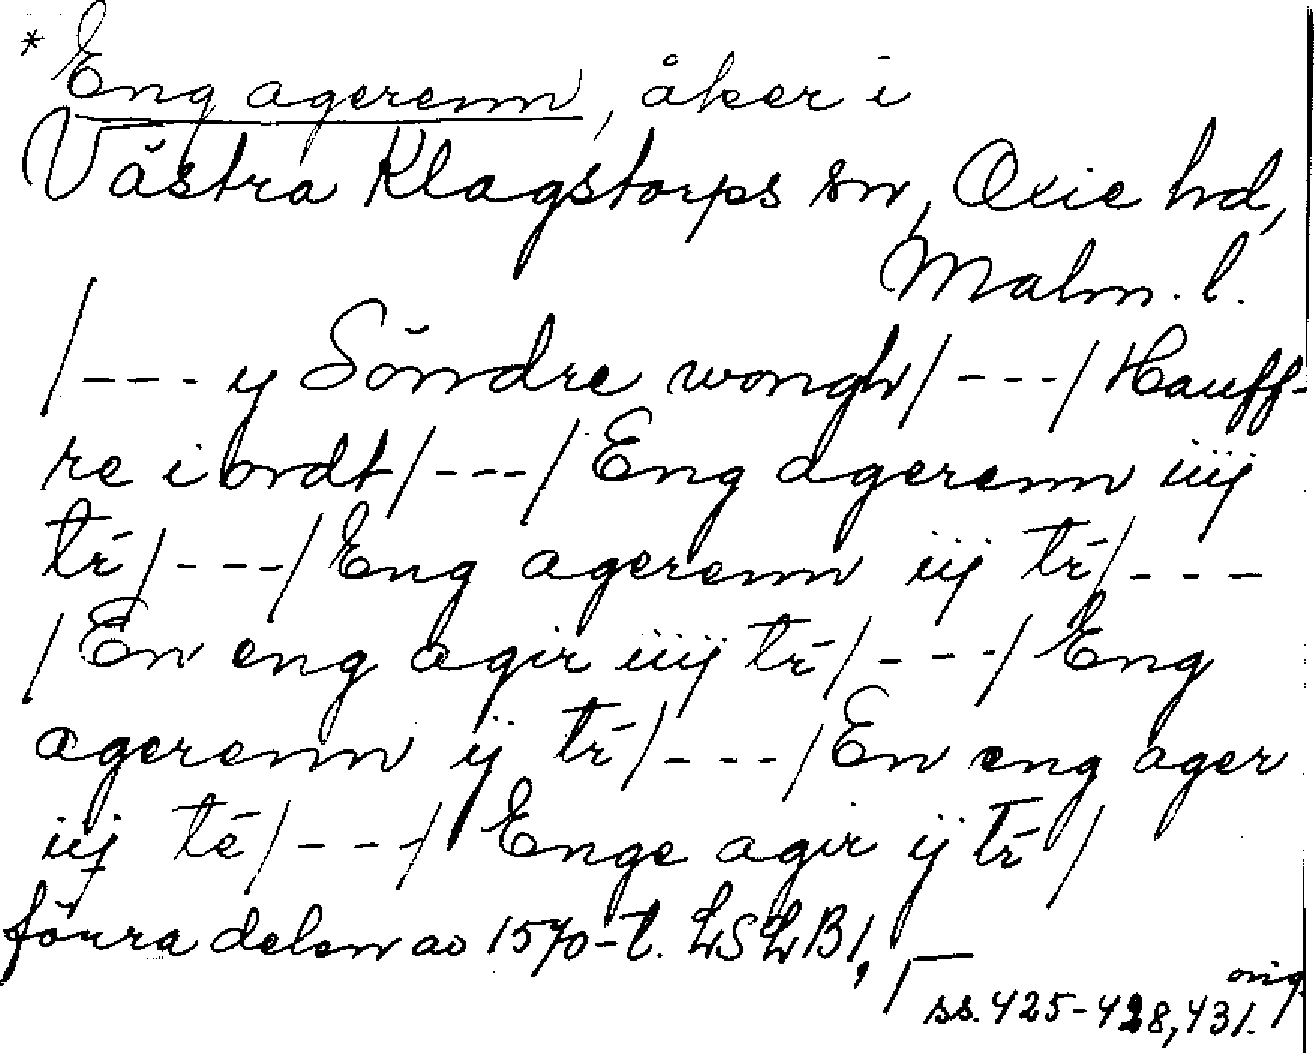 * Eng agerenn, åker i
Västra Klagstorps sn, Oxie hd,
Malm. l.
/--- y Söndre wongh/---/Hauff-
re iordt/---/Eng agerenn iiij
tr̄/---/Eng agerenn iij tr̄/---
/En eng agir iiij tr̄/---/Eng
agerenn ij tr̄/---/En eng ager
iij te̅/---/ Enge agir ij tr̄/
förra delen av 1570-t. LSLB1,
ss. 425-428, 431. orig.